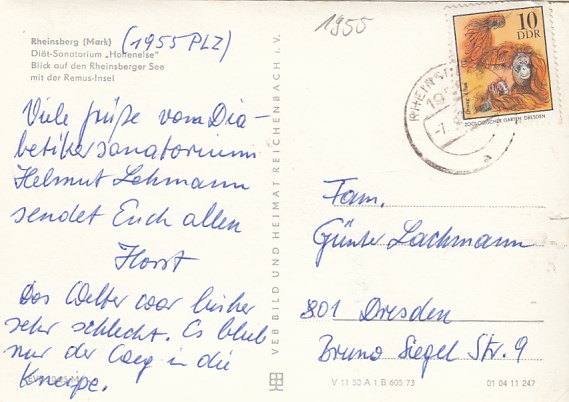 Rheinsberg (Mark) (1955 PLZ)
Diät-Sanatorium „Hohenelse"
Blick auf den Rheinsberger See
mit der Remus-Insel
1955
10
DDR
ZOOLOGISCHER GARTEN DRESDEN
RHEINS
Viele Grüße vom Dia-
betikersanatorium
Helmut Lehmann
sendet Euch allen
Horst
Das Wetter war bisher
sehr schlecht. Es blieb
nur der Weg in die
Kneipe.
VEB BILD UND HEIMAT REICHENBACH i. V.
Fam.
Günter Lachmann
801 Dresden
Bruno Siegel Str. 9
V 11 50 A 1 B 605/73
01 04 11 247